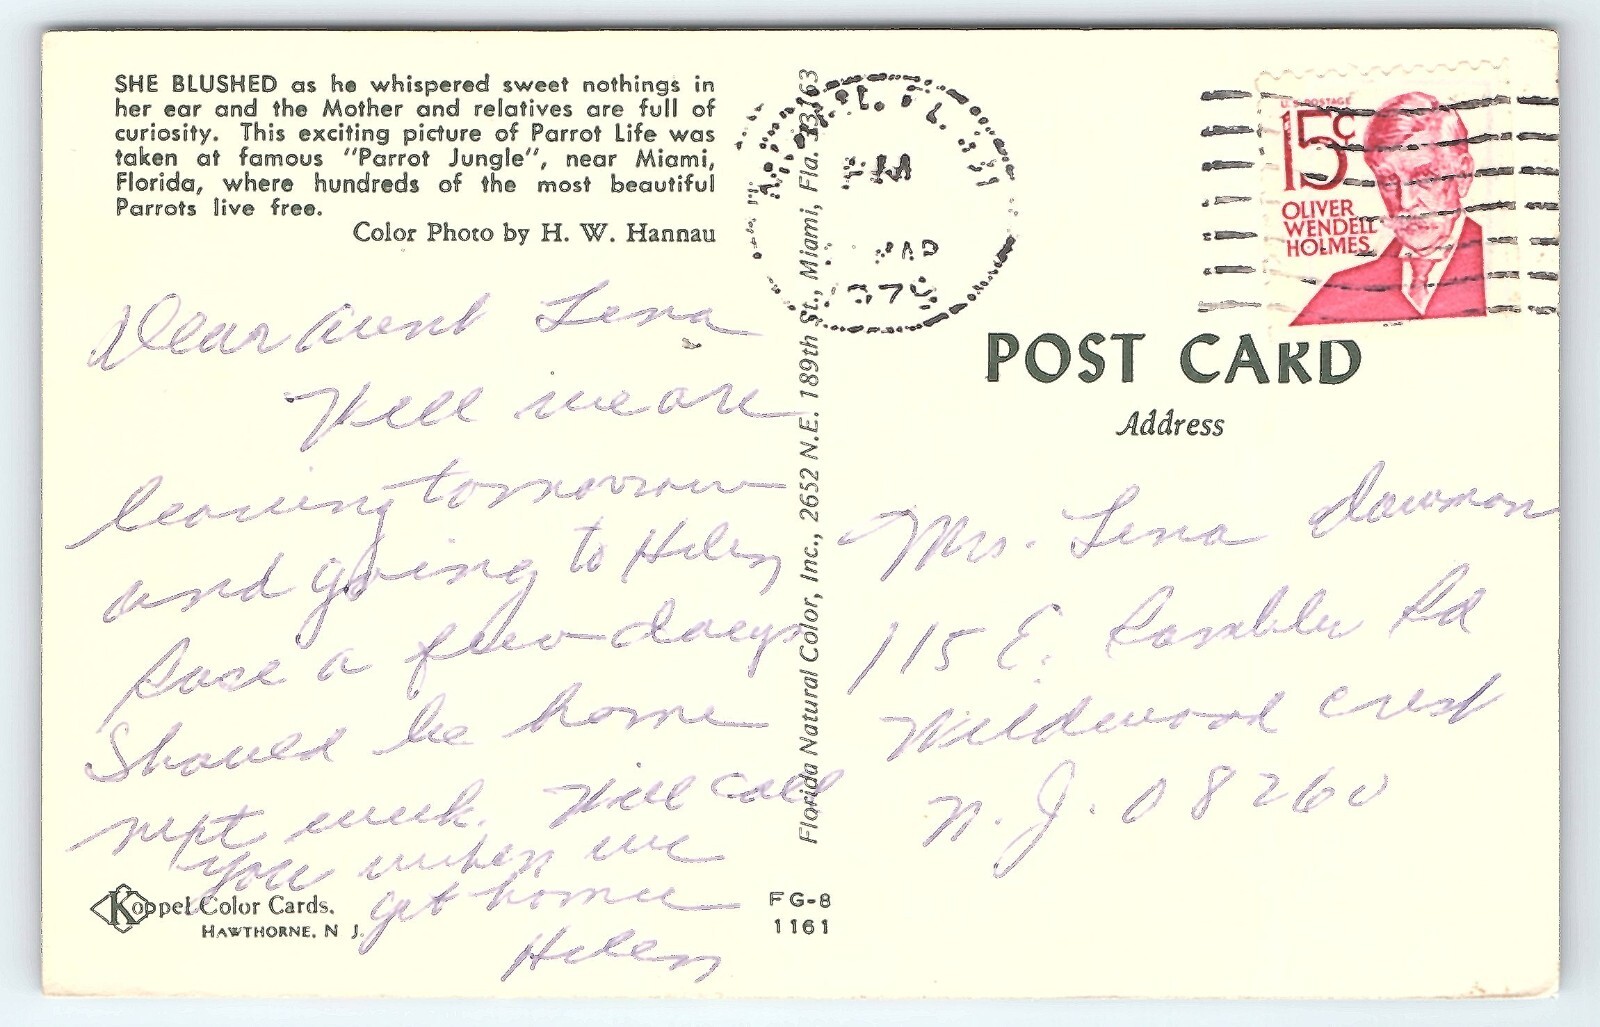 SHE BLUSHED as he whispered sweet nothings in
her ear and the Mother and relatives are full of
curiosity. This exciting picture of Parrot Life was
taken at famous "Parrot Jungle", near Miami,
Florida, where hundreds of the most beautiful
Parrots live free.
Color Photo by H. W. Hannau
Dear Aunt Lena
Well we are
leaving tomorrow
and going to Helen
Rose a few days
Should be home
next week. Will call
you when we
get home
Helen
Koppel Color Cards.
HAWTHORNE, N J.
Florida Natural Color, Inc., 2652 N.E. 189th St., Miami, Fla. 33163
FG-8
1161
PM
U.S. POSTAGE
15c
OLIVER
WENDELL
HOLMES
POST CARD
Address
Mrs. Lena Dawman
115 E. Rambler Rd
Wildwood Crest
N.J. 08260